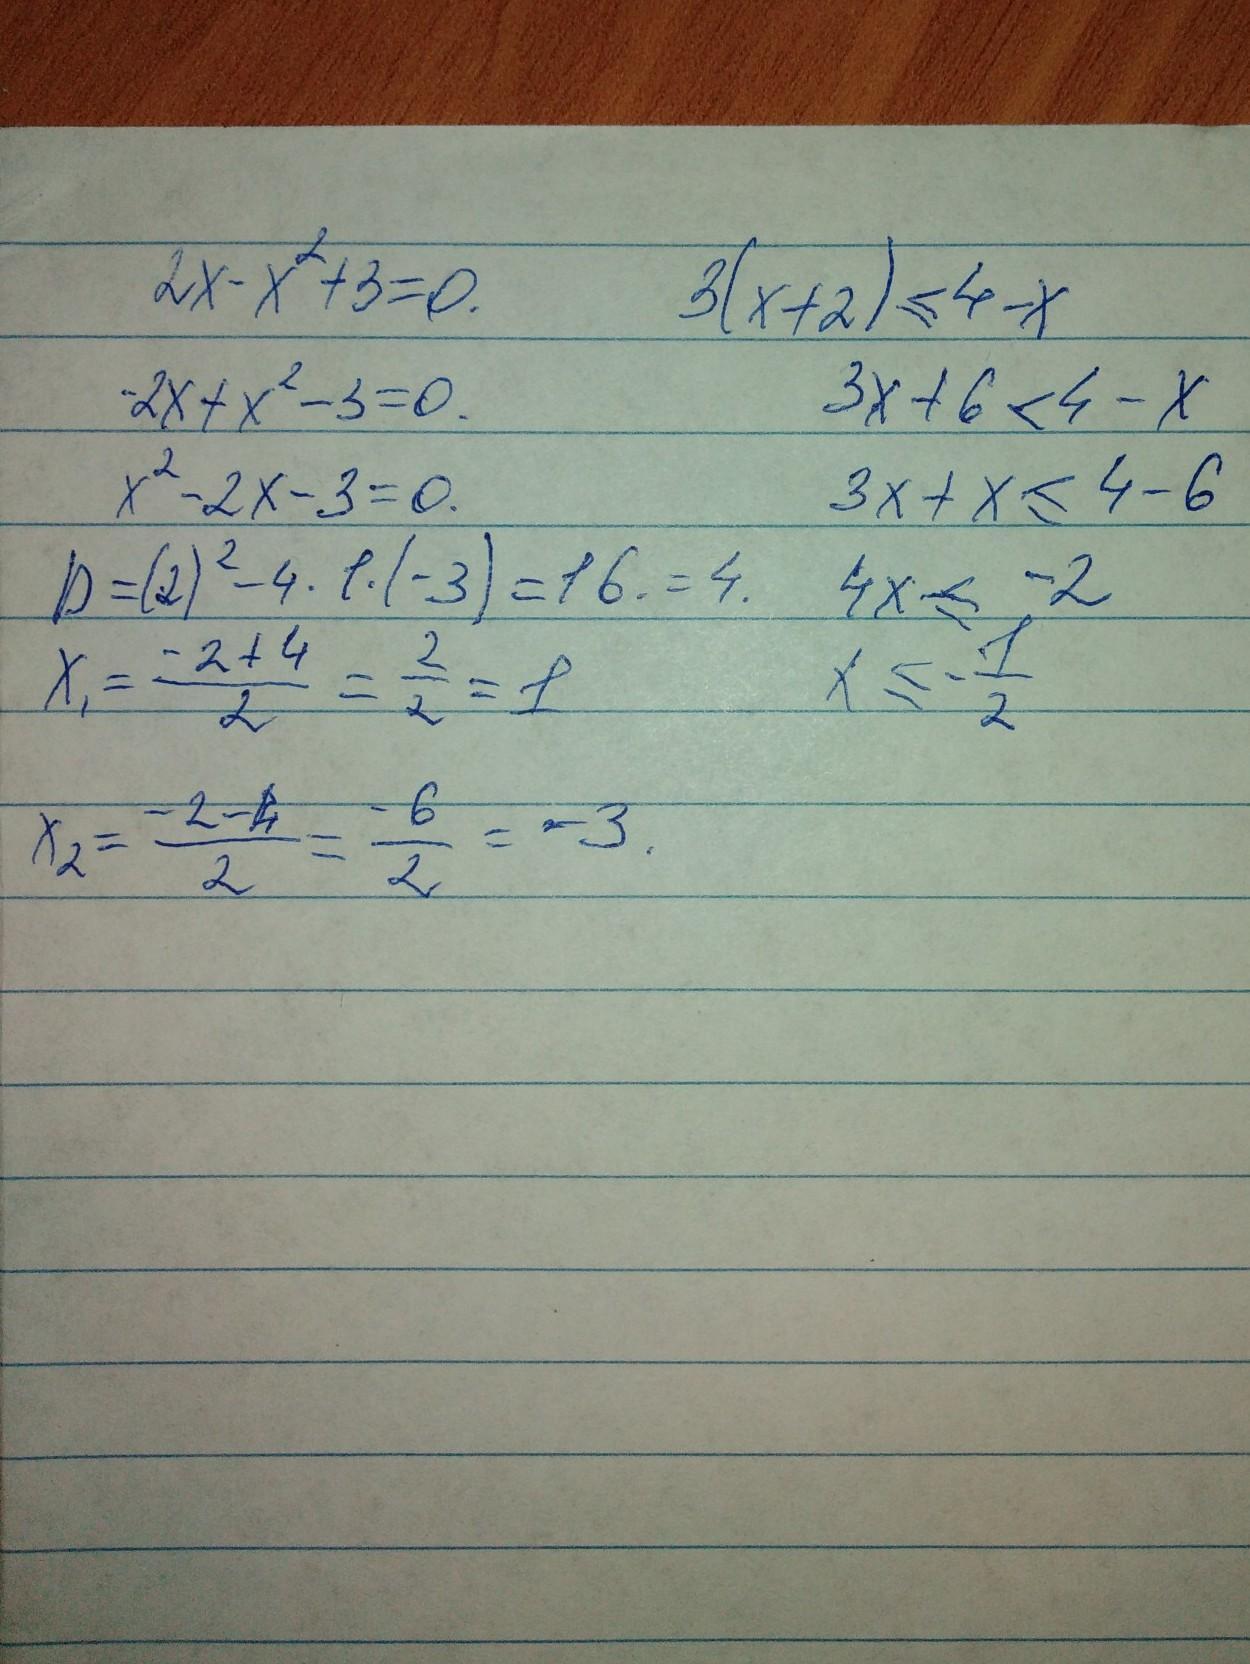 2x-x²+3=0.
-2x+x²-3=0.
x²-2x-3=0.
D=(2)²-4·1·(-3)=16.=4.
x₁=(-2+4)/2=2/2=1
x₂=(-2-4)/2=-6/2=-3.
3(x+2)≤4-x
3x+6<4-x
3x+x≤4-6
4x≤-2
x≤-1/2